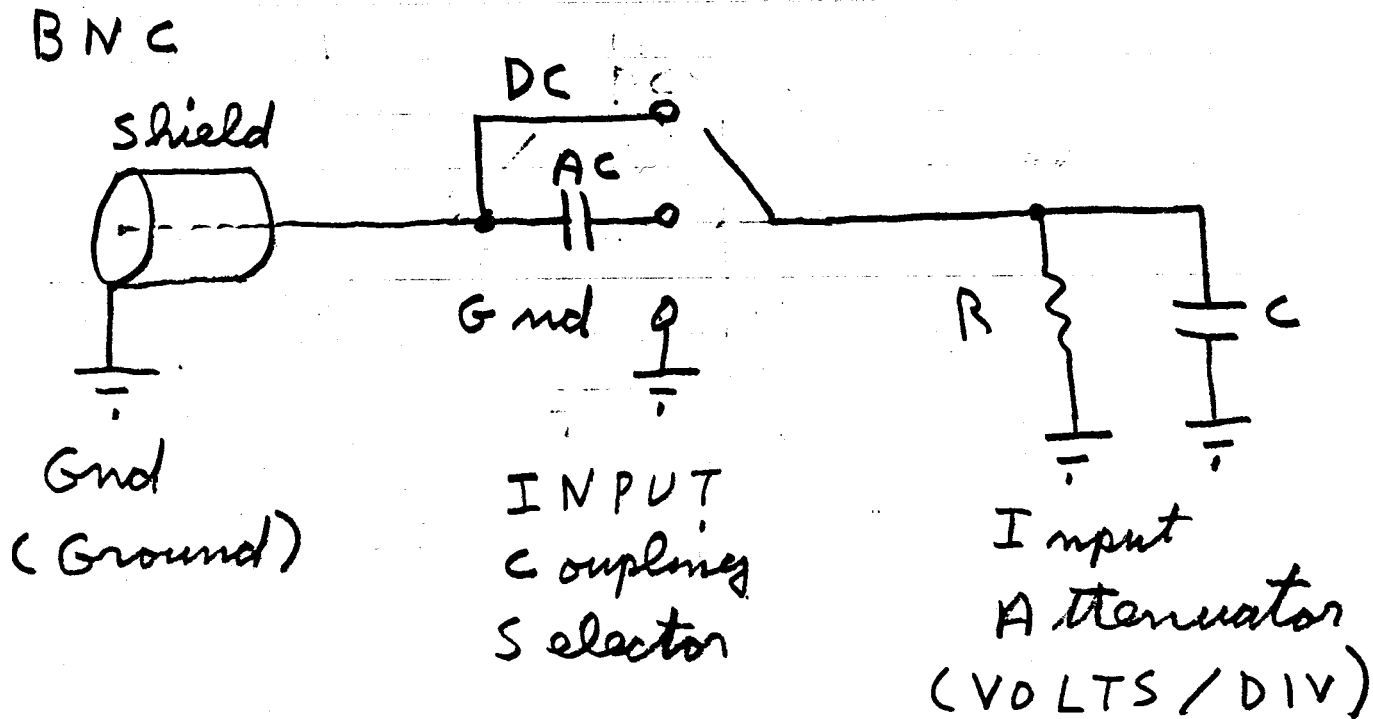 BNC
Shield
DC
AC
Gnd
R
C
Gnd
(Ground)
INPUT
Coupling
Selector
Input
Attenuator
(VOLTS / DIV)